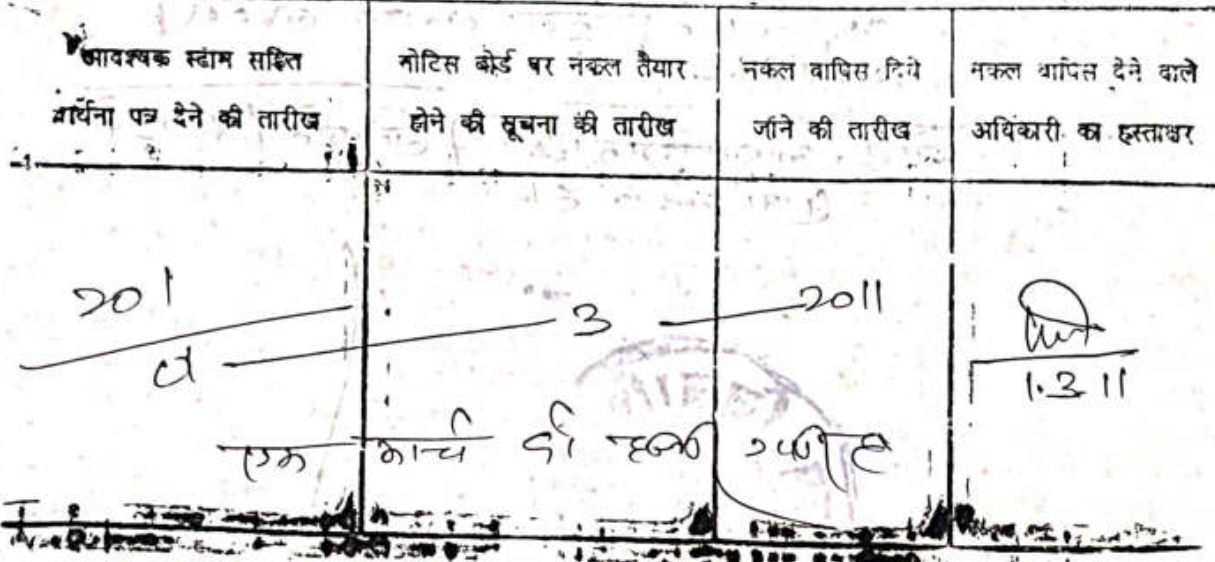 आवश्यक स्टाम सहित
प्रार्थना पत्र देने की तारीख
नोटिस बोर्ड पर नकल तैयार
होने की सूचना की तारीख
नकल वापिस दिये
जाने की तारीख
नकल वापिस देने वाले
अधिकारी का हस्ताक्षर
1
201
3
2011
1.3.11
एक मार्च